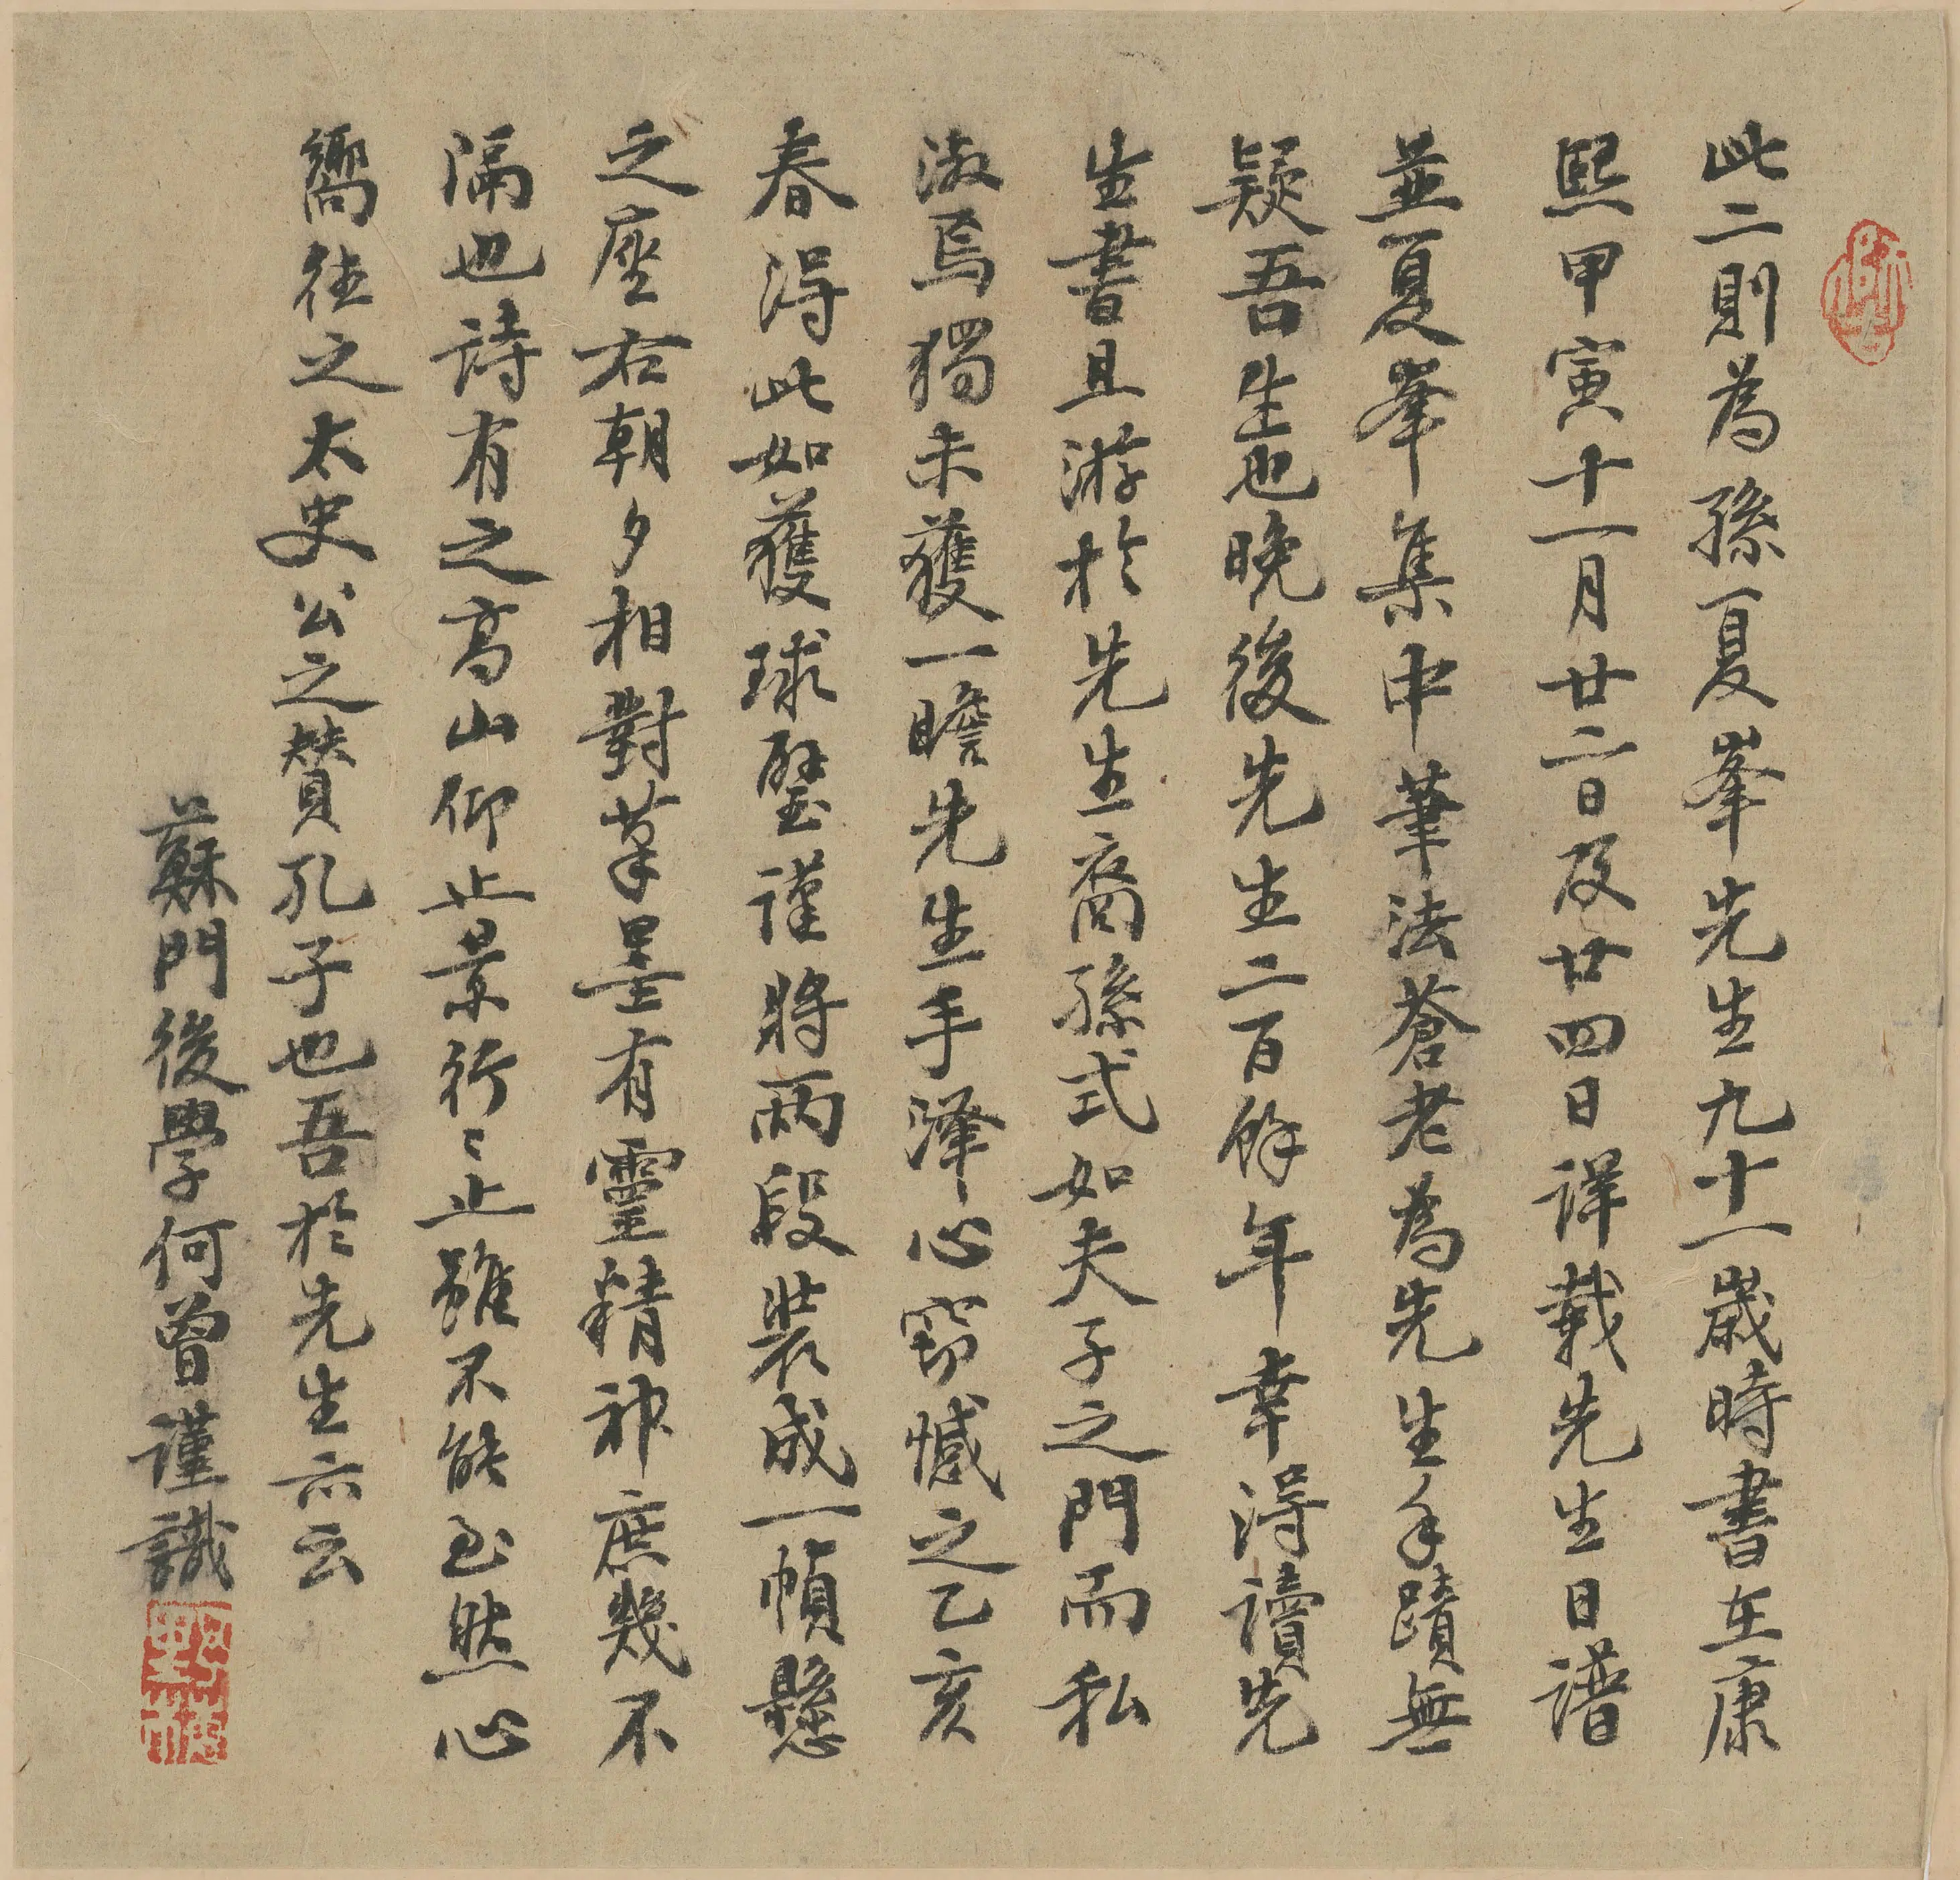 此二則為孫夏峯先生九十一歲時書在康
熙甲寅十一月廿二日及廿四日詳載先生日譜
並夏峯集中筆法蒼老為先生手蹟無
疑吾生也晚後先生二百餘年幸得讀先
生書且游於先生裔孫式如夫子之門而私
淑焉獨未獲一瞻先生手澤心竊憾之乙亥
春得此如獲球璧謹將兩段裝成一幀懸
之座右朝夕相對筆墨有靈精神庶幾不
隔也詩有之高山仰止景行行止雖不能至然心
嚮往之太史公之贊孔子也吾於先生亦云
蘇門後學何曾謹識